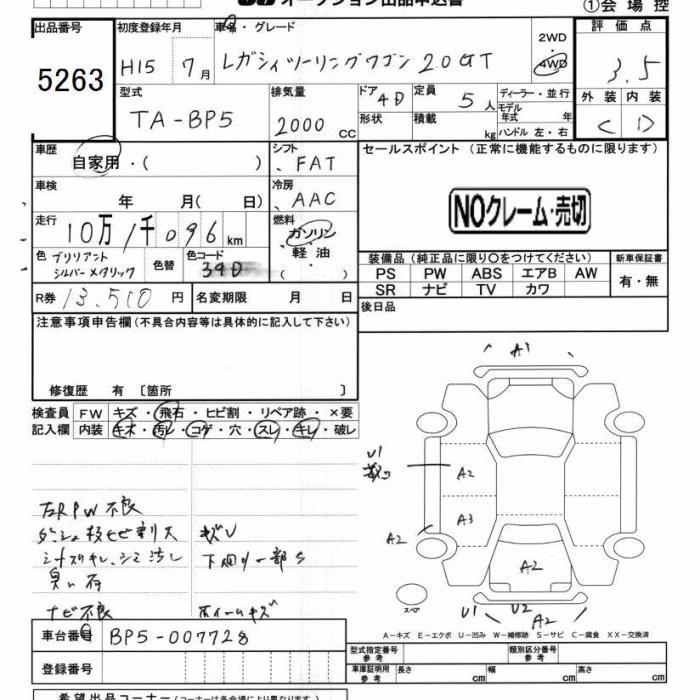 オークション出品申込書
①会場控
出品番号 初度登録年月 車名・グレード 2WD 評価点
5263 H15 7月 レガシィツーリングワゴン 2.0GT 4WD 3.5
型式 排気量 ドア 4D 定員 5人 ディーラー・並行 外装 内装
TA-BP5 2000cc 形状 積載 kg モデル年式 年 ハンドル 左・右 C D
車歴 シフト セールスポイント(正常に機能するものに限ります)
自家用・( ) FAT
車検 年 月( 日) 冷房 AAC
NOクレーム・売切
走行 10万1千096km 燃料 ガソリン・軽油・( )
色 ブリリアントシルバーメタリック 色替 色コード 39D
装備品(純正品に限り○をつけてください) 新車保証書
PS PW ABS エアB AW 有・無
SR ナビ TV カワ
R券 13,510円 名変期限 月 日 後日品
注意事項申告欄(不具合内容等は具体的に記入して下さい)
修復歴 有 〔箇所 〕
検査員 FW キズ・飛石・ヒビ割・リペア跡・×要
記入欄 内装 キズ・汚レ・コゲ・穴・スレ・キレ・破レ
A1
U1
A2
A3
A2
A2
U1 U2 A2
スペア
左RPW不良
ダッシュ板ヒビ割大 キズU
シートスレキレ、シミ汚レ 下回リ一部S
臭い有
ナビ不良 ホイールキズ
A-キズ E-エクボ U-凹み W-補修跡 S-サビ C-腐食 XX-交換済
車台番号 BP5-007728
型式指定番号 参考 類別区分番号 参考
登録番号
車庫証明用 参考 長さ cm 幅 cm 高さ cm
希望出品コーナー(コーナーは各会場により異なります)